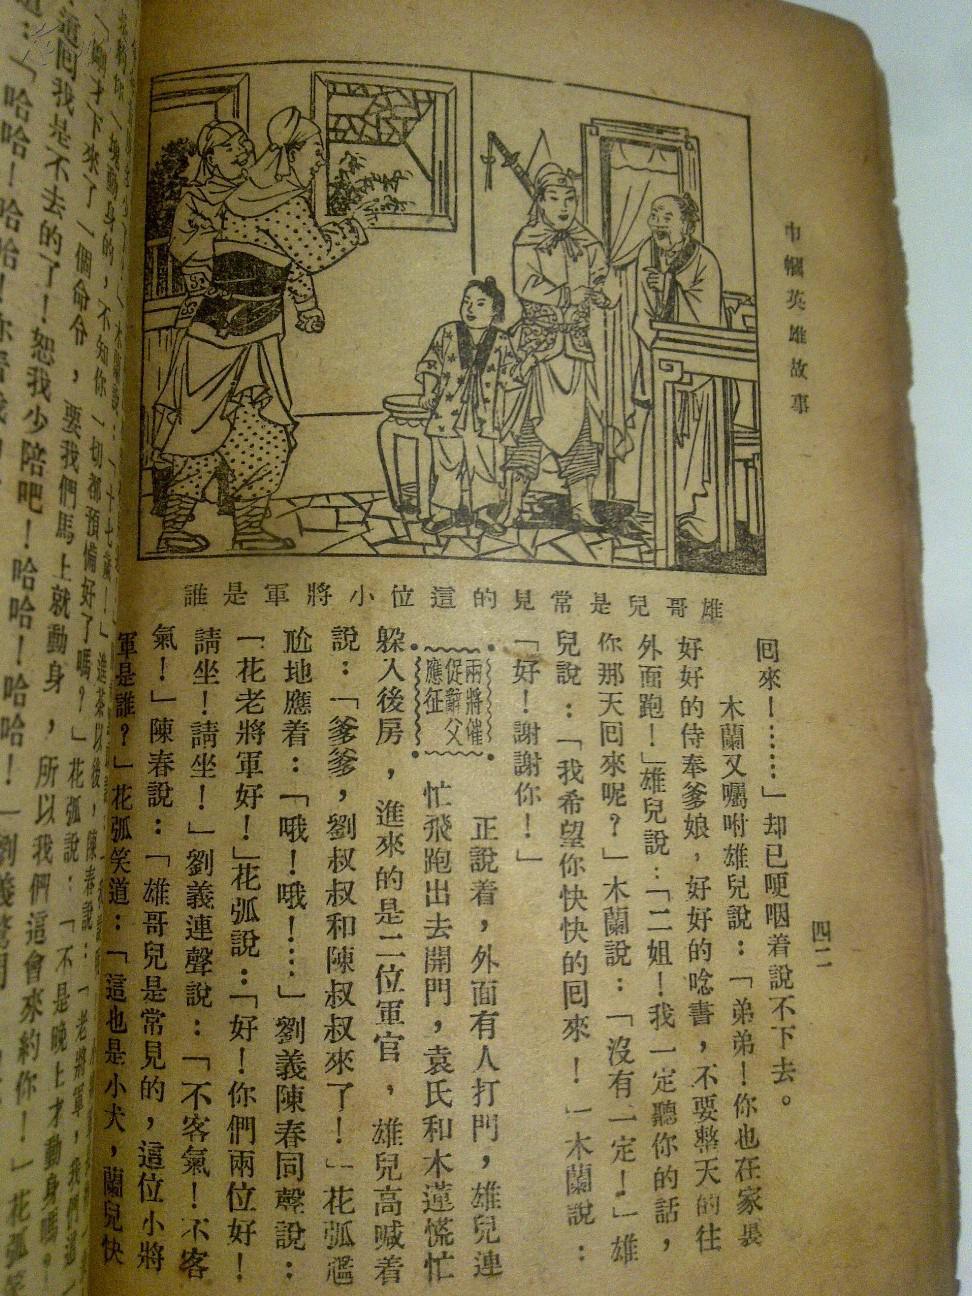 巾幗英雄故事
四二
雄哥兒是常見的這位小將軍是誰
回來！……」却已哽咽着說不下去。
木蘭又囑咐雄兒說：「弟弟！你也在家裏
好好的侍奉爹娘，好好的唸書，不要整天的往
外面跑！」雄兒說：「二姐！我一定聽你的話，
你那天回來呢？」木蘭說：「沒有一定！」雄
兒說：「我希望你快快的回來！」木蘭說：
「好！謝謝你！」
兩將催
促辭父
應征
正說着，外面有人打門，雄兒連
忙飛跑出去開門，袁氏和木蓮慌忙
躲入後房，進來的是二位軍官，雄兒高喊着
說：「爹爹，劉叔叔和陳叔叔來了！」花弧尷
尬地應着：「哦！哦！……」劉義陳春同聲說：
「花老將軍好！」花弧說：「好！你們兩位好！
請坐！請坐！」劉義連聲說：「不客氣！不客
氣！」陳春說：「雄哥兒是常見的，這位小將
軍是誰？」花弧笑道：「這也是小犬，蘭兒快
十七歲！」進茶以後，陳春說：「老將軍，我們這
動身的，不知你一切都預備好了嗎？」花弧說：「不是晚上才動身嗎？
剛才下來了一個命令，要我們馬上就動身，所以我們這會來約你！」花弧
這回我是不去的了！恕我少陪吧！哈哈！哈哈！」劉義驚問
：「哈哈！哈哈！你看我